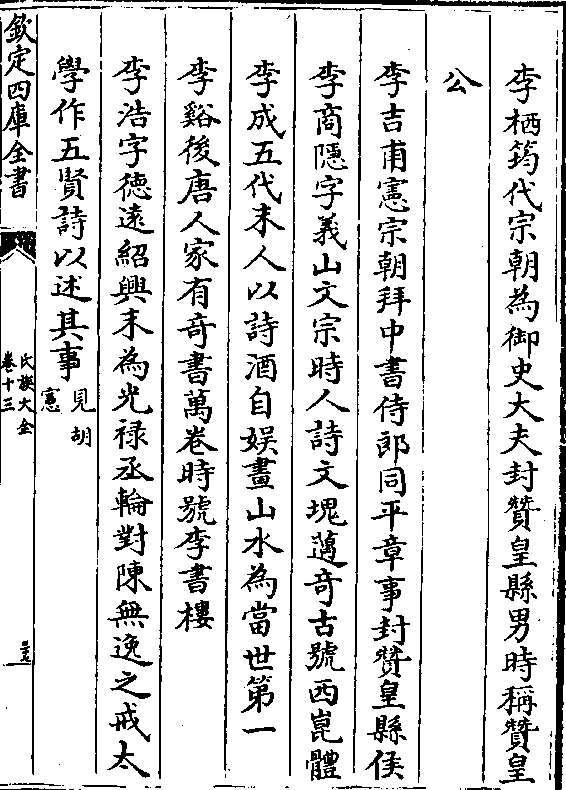 李栖筠代宗朝為御史大夫封贊皇縣男時稱贊皇
公
李吉甫憲宗朝拜中書侍郎同平章事封贊皇縣侯
李商隱字義山文宗時人詩文塊邁奇古號西崑體
李成五代末人以詩酒自娛畫山水為當世第一
李谿後唐人家有奇書萬卷時號李書樓
李浩字德遠紹興末為光禄丞輪對陳無逸之戒太
學作五賢詩以述其事見胡憲
欽定四庫全書
氏族大全
卷十三